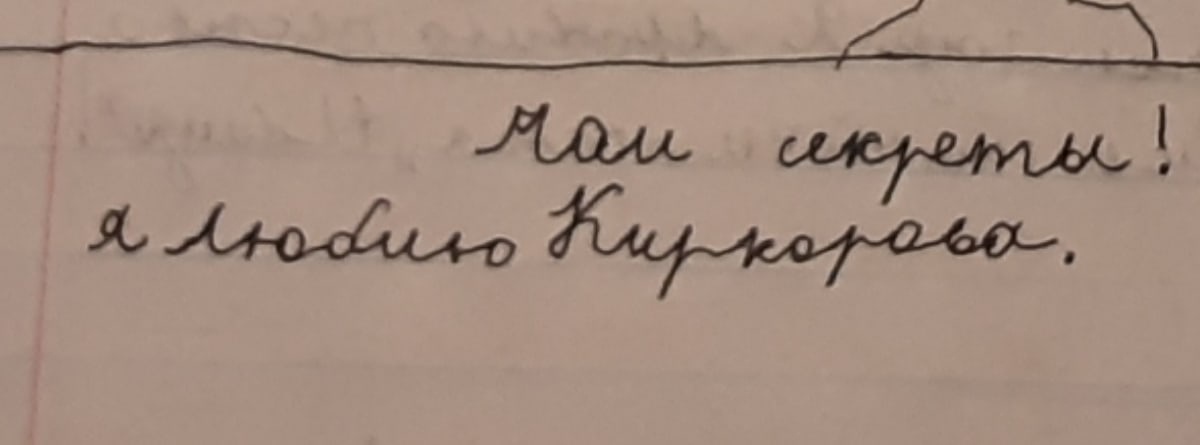 Маи секреты!
я люблю Киркорова.